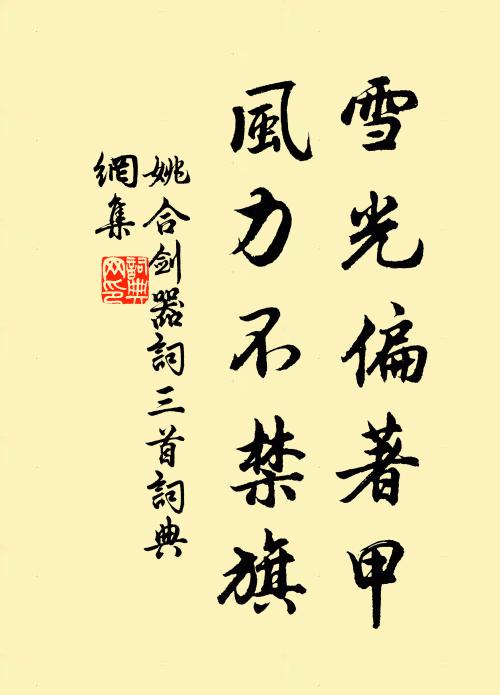 雪光偏著甲
風力不禁旗
姚合劍器詞三首詞典
網集
詞典網印